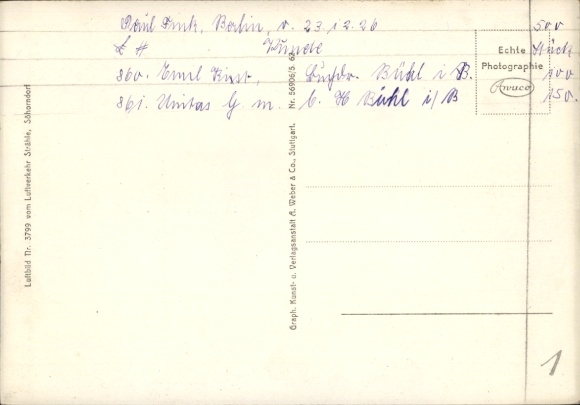 Berlin, v. 23.12.26 500
Stück
860. Emil Bühl i B. 100
861. Unitas G. m. b. H Bühl i/B 150.
Echte
Photographie
Awuco
Luftbild Nr. 3799 vom Luftverkehr Strähle, Schorndorf
Graph. Kunst- u. Verlagsanstalt A. Weber & Co., Stuttgart. Nr. 56906/5. 62
1